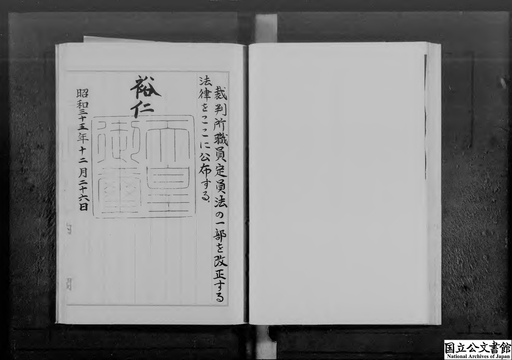 裁判所職員定員法の一部を改正する
法律をここに公布する。
裕仁
天皇
御璽
昭和三十五年十二月二十六日
国立公文書館
National Archives of Japan